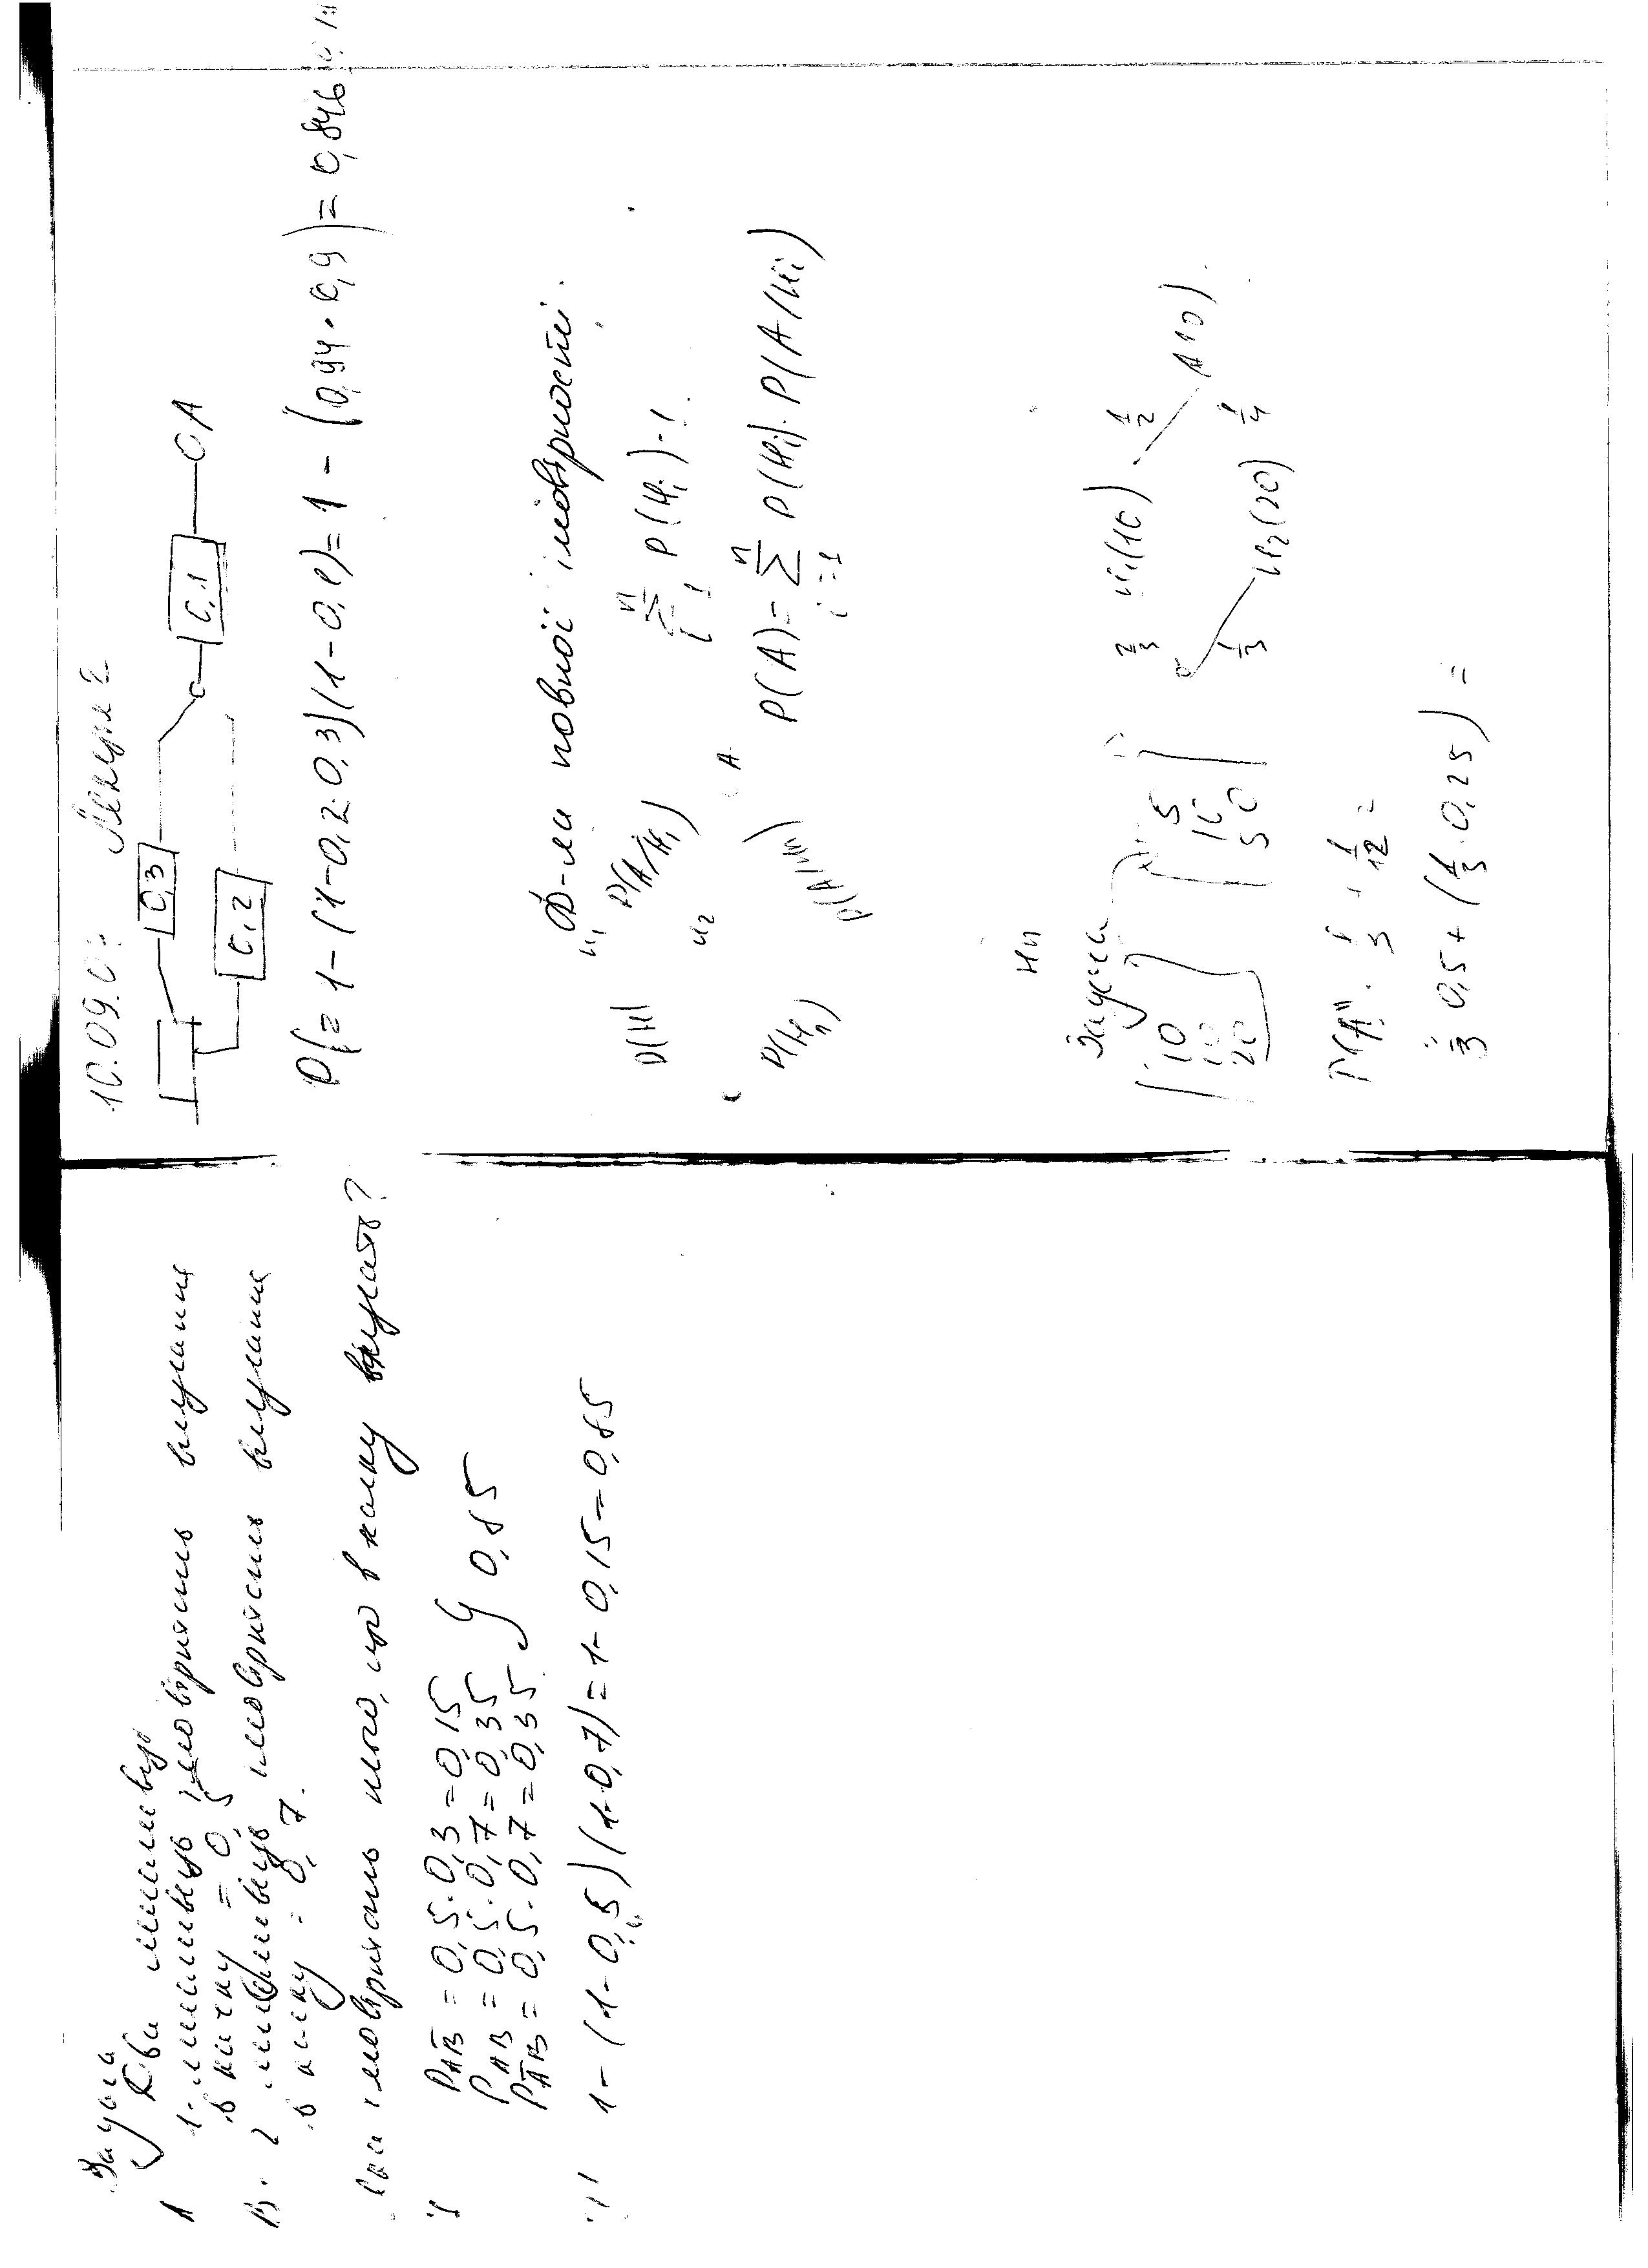 Задача
Два мисливці
A 1. мисливець імовірність влучання
в качку = 0,5
B. 2 мисливець імовірність влучання
в качку = 0,7.
імовірність того, що в качку влучать?
P_{A\bar{B}} = 0,5·0,3 = 0,15
P_{AB} = 0,5·0,7 = 0,35 } 0,85
P_{\bar{A}B} = 0,5·0,7 = 0,35
1-(1-0,5)(1-0,7)=1-0,15=0,85
10.09.0 Лекція 2
0,3
0,1 A
0,2
P(= 1-(1-0,2·0,3)(1-0,1)= 1 - (0,94·0,9)= 0,846
Ф-ла повної імовірності.
H₁
P(H P(A/H₁)
H₂
A
P(Hₙ) P(A/Hₙ)
\sum_{i=1}^{n} P(Hᵢ)=1
P(A)= \sum_{i=1}^{n} P(Hᵢ)·P(A/Hᵢ)
Hₙ
Задача
10 5 2/3 H₁(10) 1/2
10 10 A10)
20 50 1/3 H₂(20) 1/4
P(A) = 1/3 + 1/12 =
2/3 0,5+(1/3·0,25) =